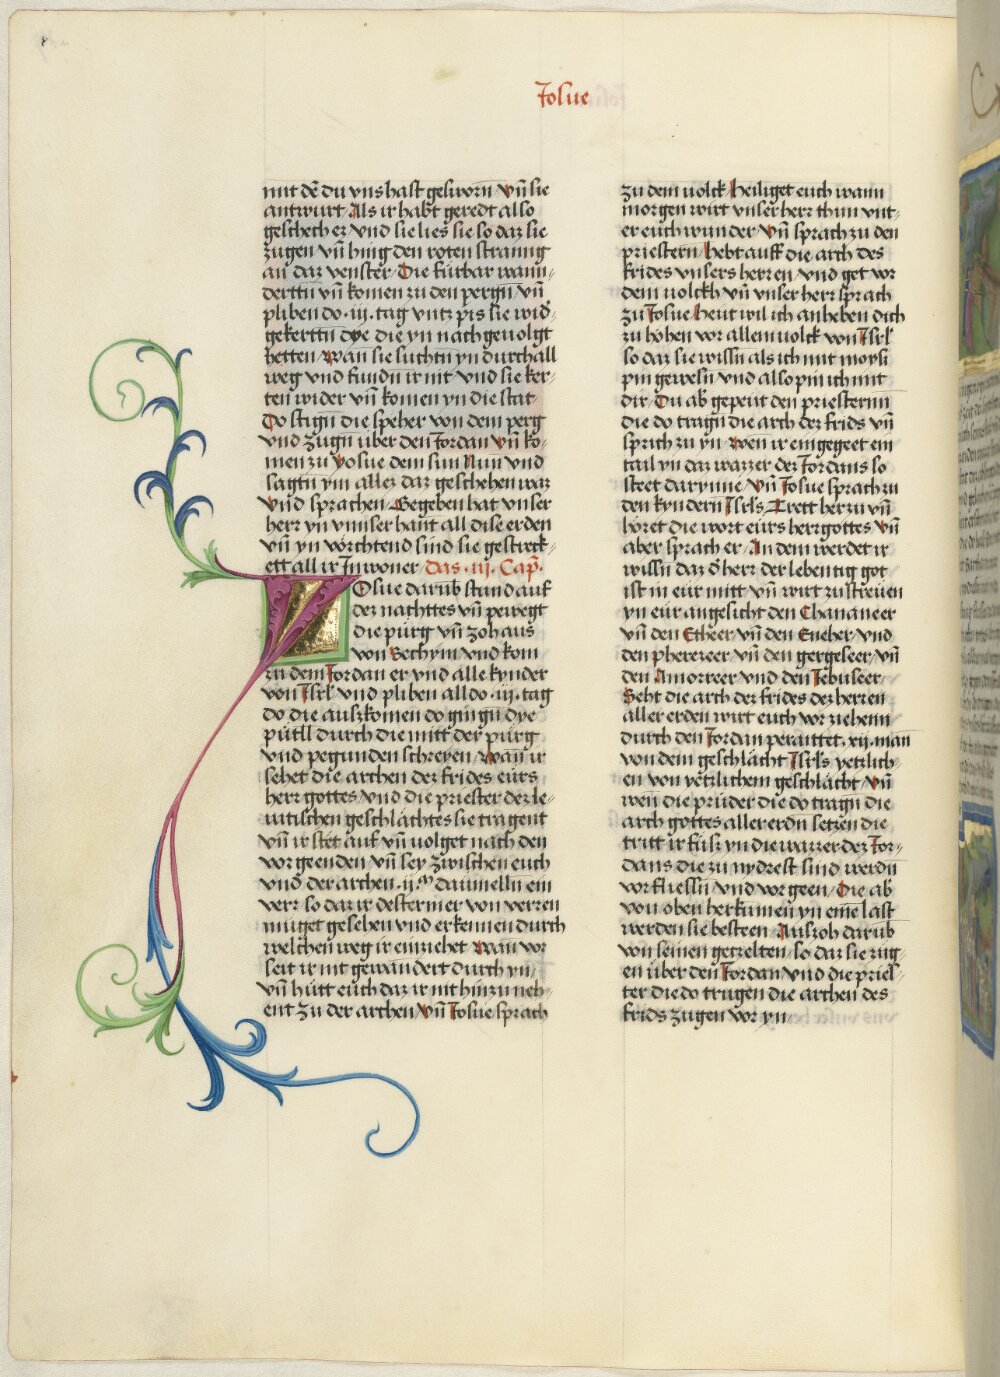 Josue
mit dē du vns hast gesworn Vn̄ sie
antwurt Als ir habt geredt also
geschech ez Vnd sie lies sie so daz sie
zugen vn̄ hing den roten strainig
an daz venster Die fürbaz wann⸗
dertn̄ vn̄ komen zu den pergn̄ vn̄
pliben do ·iij· tag vntz pis sie wid̕
gekertn̄ dye die yn nach geuolgt
hetten Wan sie suchtn̄ yn durch all
weg vnd fundn̄ ir nit vnd sie ker⸗
ten wider vn̄ komen yn die stat
Do stign̄ die speher von dem perg
vnd zugn̄ über den Jordan Vn̄ ko⸗
men zu Yosue dem sun Nun vnd
sagtn̄ ym allez daz geschehen waz
Vnd sprachen Gegeben hat vnser
herr yn vnnser hant all dise erden
vn̄ yn vörchtend sind sie gestrek⸗
ett all ir Jnwoner Das ·iij· Cap̄·
Osue darūb stund auf
dez nachttes vn̄ pewegt
die pürg vn̄ zoh aus
von Sechym vnd kom
zu dem Jordan er vnd alle kynder
von Jsrl̄ vnd pliben alldo ·iij· tag
do die auszkomen do gingn̄ dye
pütll durch die mitt der pürg
vnd pegunden schreyen Wan̄ ir
sehet die archen dez frides eürs
herr gottes vnd die priester dez le⸗
uitischen geschlächtes sie tragent
vn̄ ir stet auf vn̄ volget nach den
vor geenden vn̄ sey zwischen euch
vnd der archen ·ij·ᴹ daumelln̄ ein
verr so daz ir dester mer von verren
müget gesehen vnd erkennen durch
welchen weg ir einziehet Wan̄ vor
seit ir nit gewandert durch yn
vn̄ hütt euch daz ir nit hinzu neh⸗
ent zu der archen Vn̄ Josue sprach
zu dem volck Heiliget euch wann
morgen wirt vnser herr thun vnt⸗
er euch wunder Vn̄ sprach zu den
priestern Hebt auff die arch des
frides vnsers herren vnd get vor
dem volckh vn̄ vnser herr sprach
zu Josue Heut wil ich anheben dich
zu höhen vor allem volck von Jsrl̄
so daz sie wissn̄ als ich mit moysi
pin gewesn̄ vnd also pin ich mit
dir Du ab gepeut den priesternn
die do tragn̄ die arch der frids vn̄
sprich zu yn Wen ir eingegeet ein
tail yn daz wazzer dez Jordans so
steet darynne Vn̄ Josue sprach zu
den kyndern Jsrls̄ Trett her zu vn̄
höret die wort eürs herrgottes Vn̄
aber sprach er An dem werdet ir
wissn̄ daz d̕ herr der lebentig got
ist in eür mitt vn̄ wirt zustreüen
yn eür angesicht den Chananeer
vn̄ den Etheer vn̄ den Eueher vnd
den pherezeer vn̄ den gergeseer vn̄
den Amorreer vnd den Jebuseer
Seht die arch dez frides dez herren
aller erden wirt euch vor ziehenn
durch den Jordan peraittet ·xij· man
von dem geschlächt Jsrls̄ yetzlich⸗
en von yetzlichem geschlächt Vn̄
wen̄ die prüder die do tragn̄ die
arch gottes aller erdn̄ setzen die
tritt ir füsz yn die wazzer dez Jor⸗
dans die zu nydrest sind werdn̄
vor fliessn̄ vnd vor geen Die ab
von oben her kumen̄ yn eine last
werden sie besteen Auszoh darūb
von seinen getzelten so daz sie zug⸗
en über den Jordan vnd die pries⸗
ter die do trugen die archen des
frids zugen vor yn